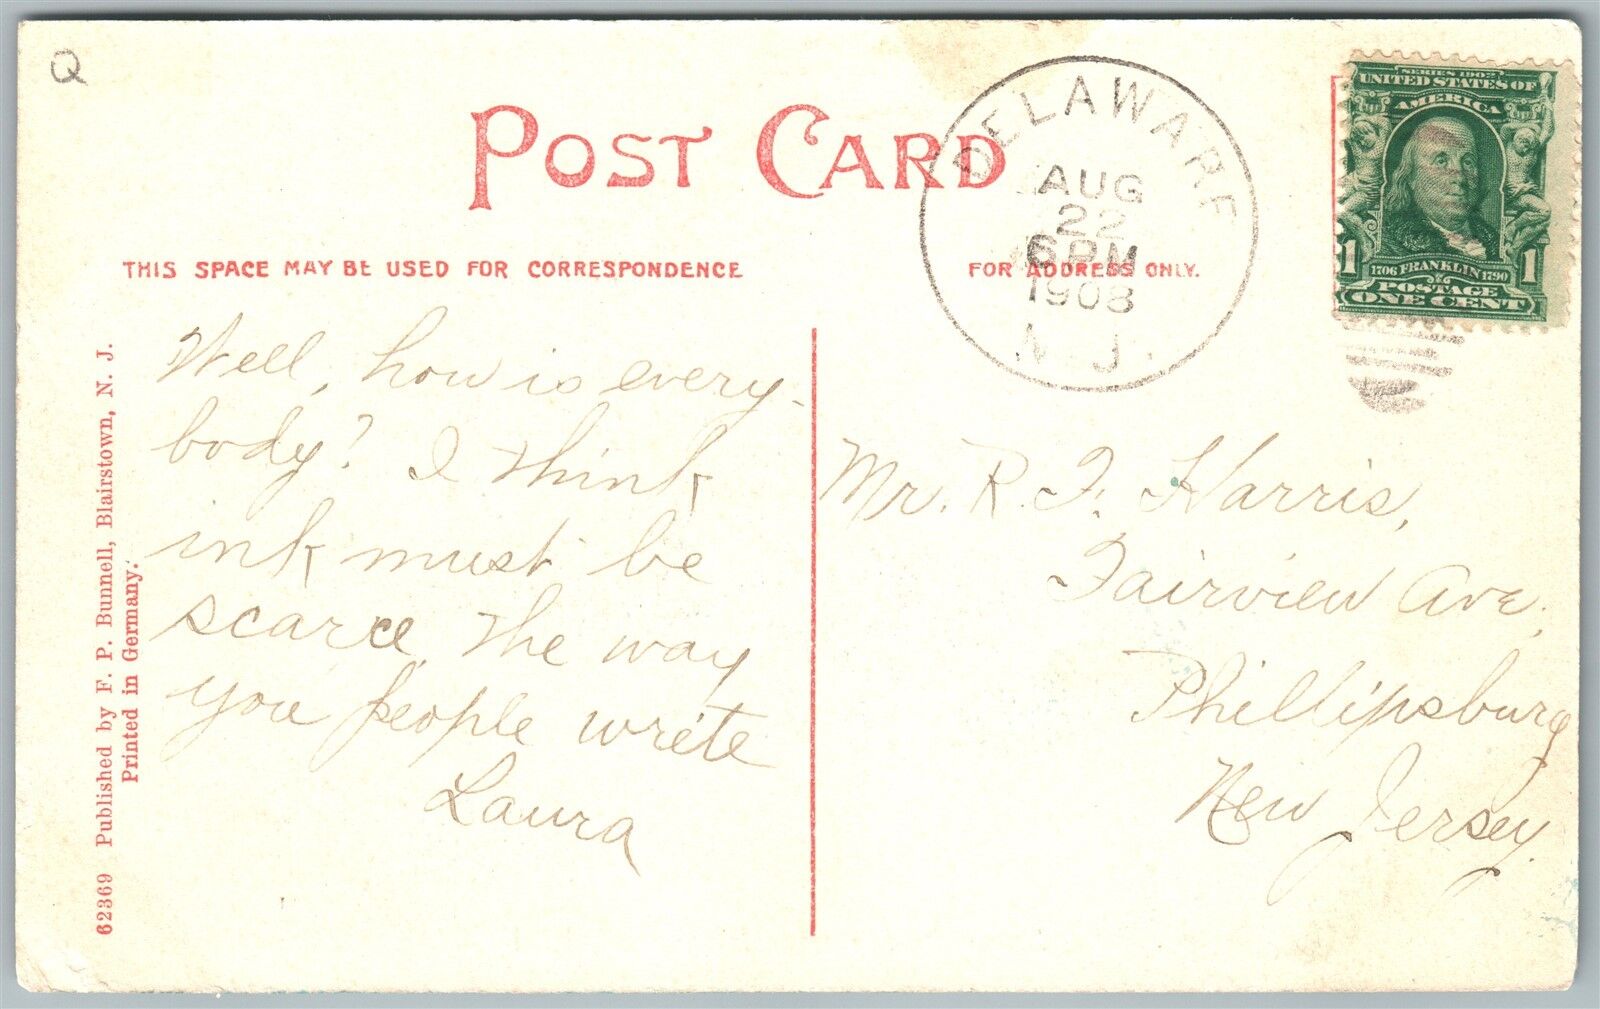 Q
POST CARD
THIS SPACE MAY BE USED FOR CORRESPONDENCE
FOR ADDRESS ONLY.
DELAWARE
AUG
22
6 PM
1908
N. J.
SERIES 1902
UNITED STATES OF
AMERICA
1706 FRANKLIN 1790
1 1
POSTAGE
ONE CENT
Well, how is every-
body? I think
ink must be
scarce the way
you people write
Laura
Mr. R. F. Harris,
Fairview Ave.
Phillipsburg
New Jersey.
62369 Published by F. P. Bunnell, Blairstown, N. J.
Printed in Germany.